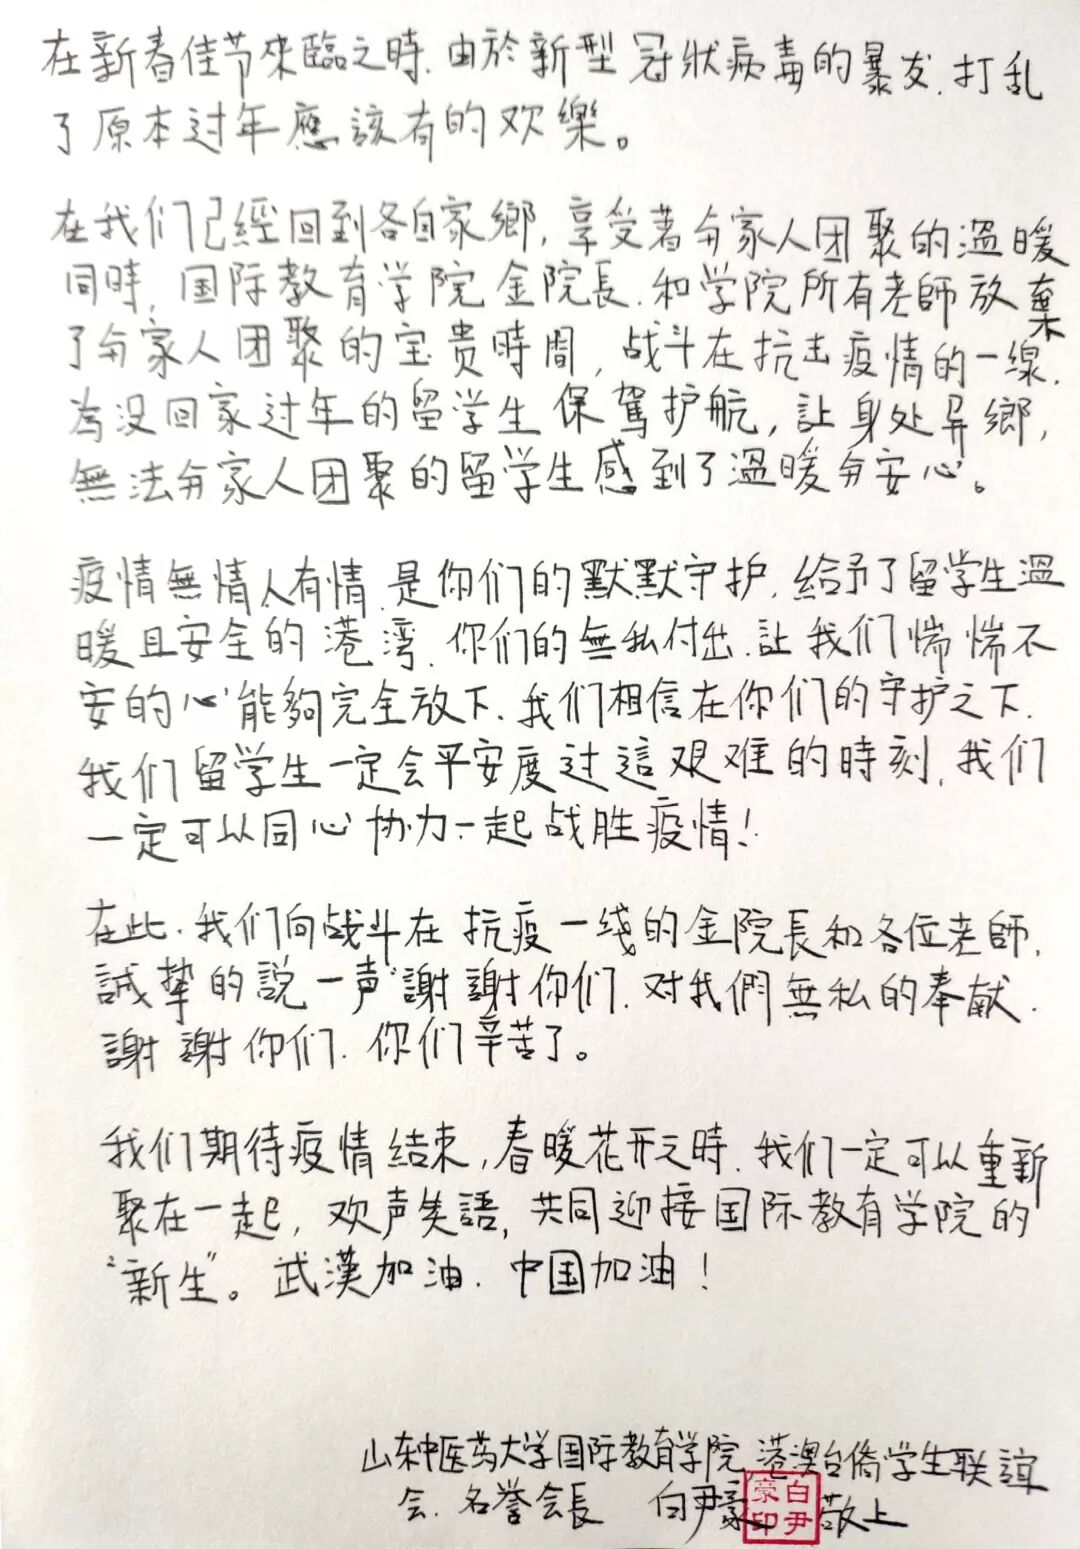 在新春佳节來臨之時,由於新型冠狀病毒的暴发,打乱
了原本过年應該有的欢樂。
在我们已經回到各自家鄉,享受著与家人团聚的溫暖
同時,国际教育学院金院長,和学院所有老師放棄
了与家人团聚的宝贵時間,战斗在抗击疫情的一線,
為没回家过年的留学生保駕护航,讓身处异鄉,
無法与家人团聚的留学生感到了溫暖与安心。
疫情無情人有情,是你们的默默守护,給予了留学生溫
暖且安全的港湾,你们的無私付出,让我们惴惴不
安的心能夠完全放下,我们相信在你们的守护之下,
我们留学生一定会平安度过這艰难的時刻,我们
一定可以同心协力一起战胜疫情!
在此,我们向战斗在抗疫一线的金院長和各位老師,
誠挚的說一声"謝謝你们,对我們無私的奉献,
謝謝你们,你们辛苦了。
我们期待疫情结束,春暖花开之時,我们一定可以重新
聚在一起,欢声笑語,共同迎接国际教育学院的
“新生”。武漢加油,中国加油!
山东中医药大学国际教育学院港澳台僑学生联誼
会,名誉会長 白尹豪 敬上
白尹
豪印